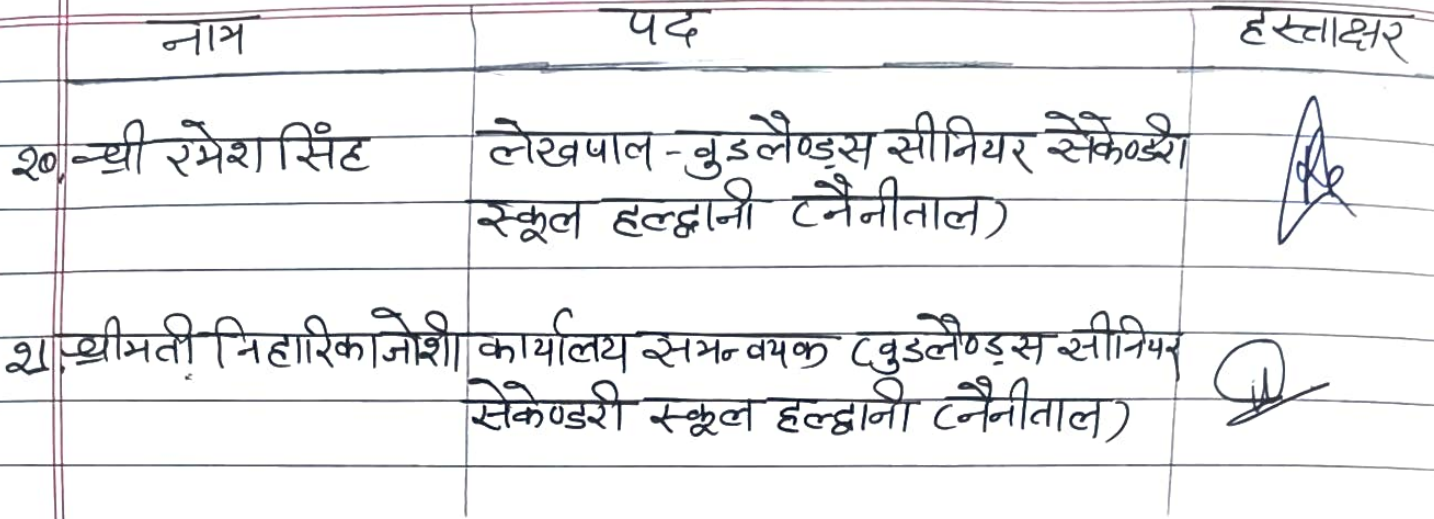 नाम पद हस्ताक्षर
२०. श्री रमेश सिंह लेखपाल - वुडलैण्ड्स सीनियर सेकेण्डरी
स्कूल हल्द्वानी (नैनीताल)
२१. श्रीमती निहारिका जोशी कार्यालय समन्वयक (वुडलैण्ड्स सीनियर
सेकेण्डरी स्कूल हल्द्वानी (नैनीताल)